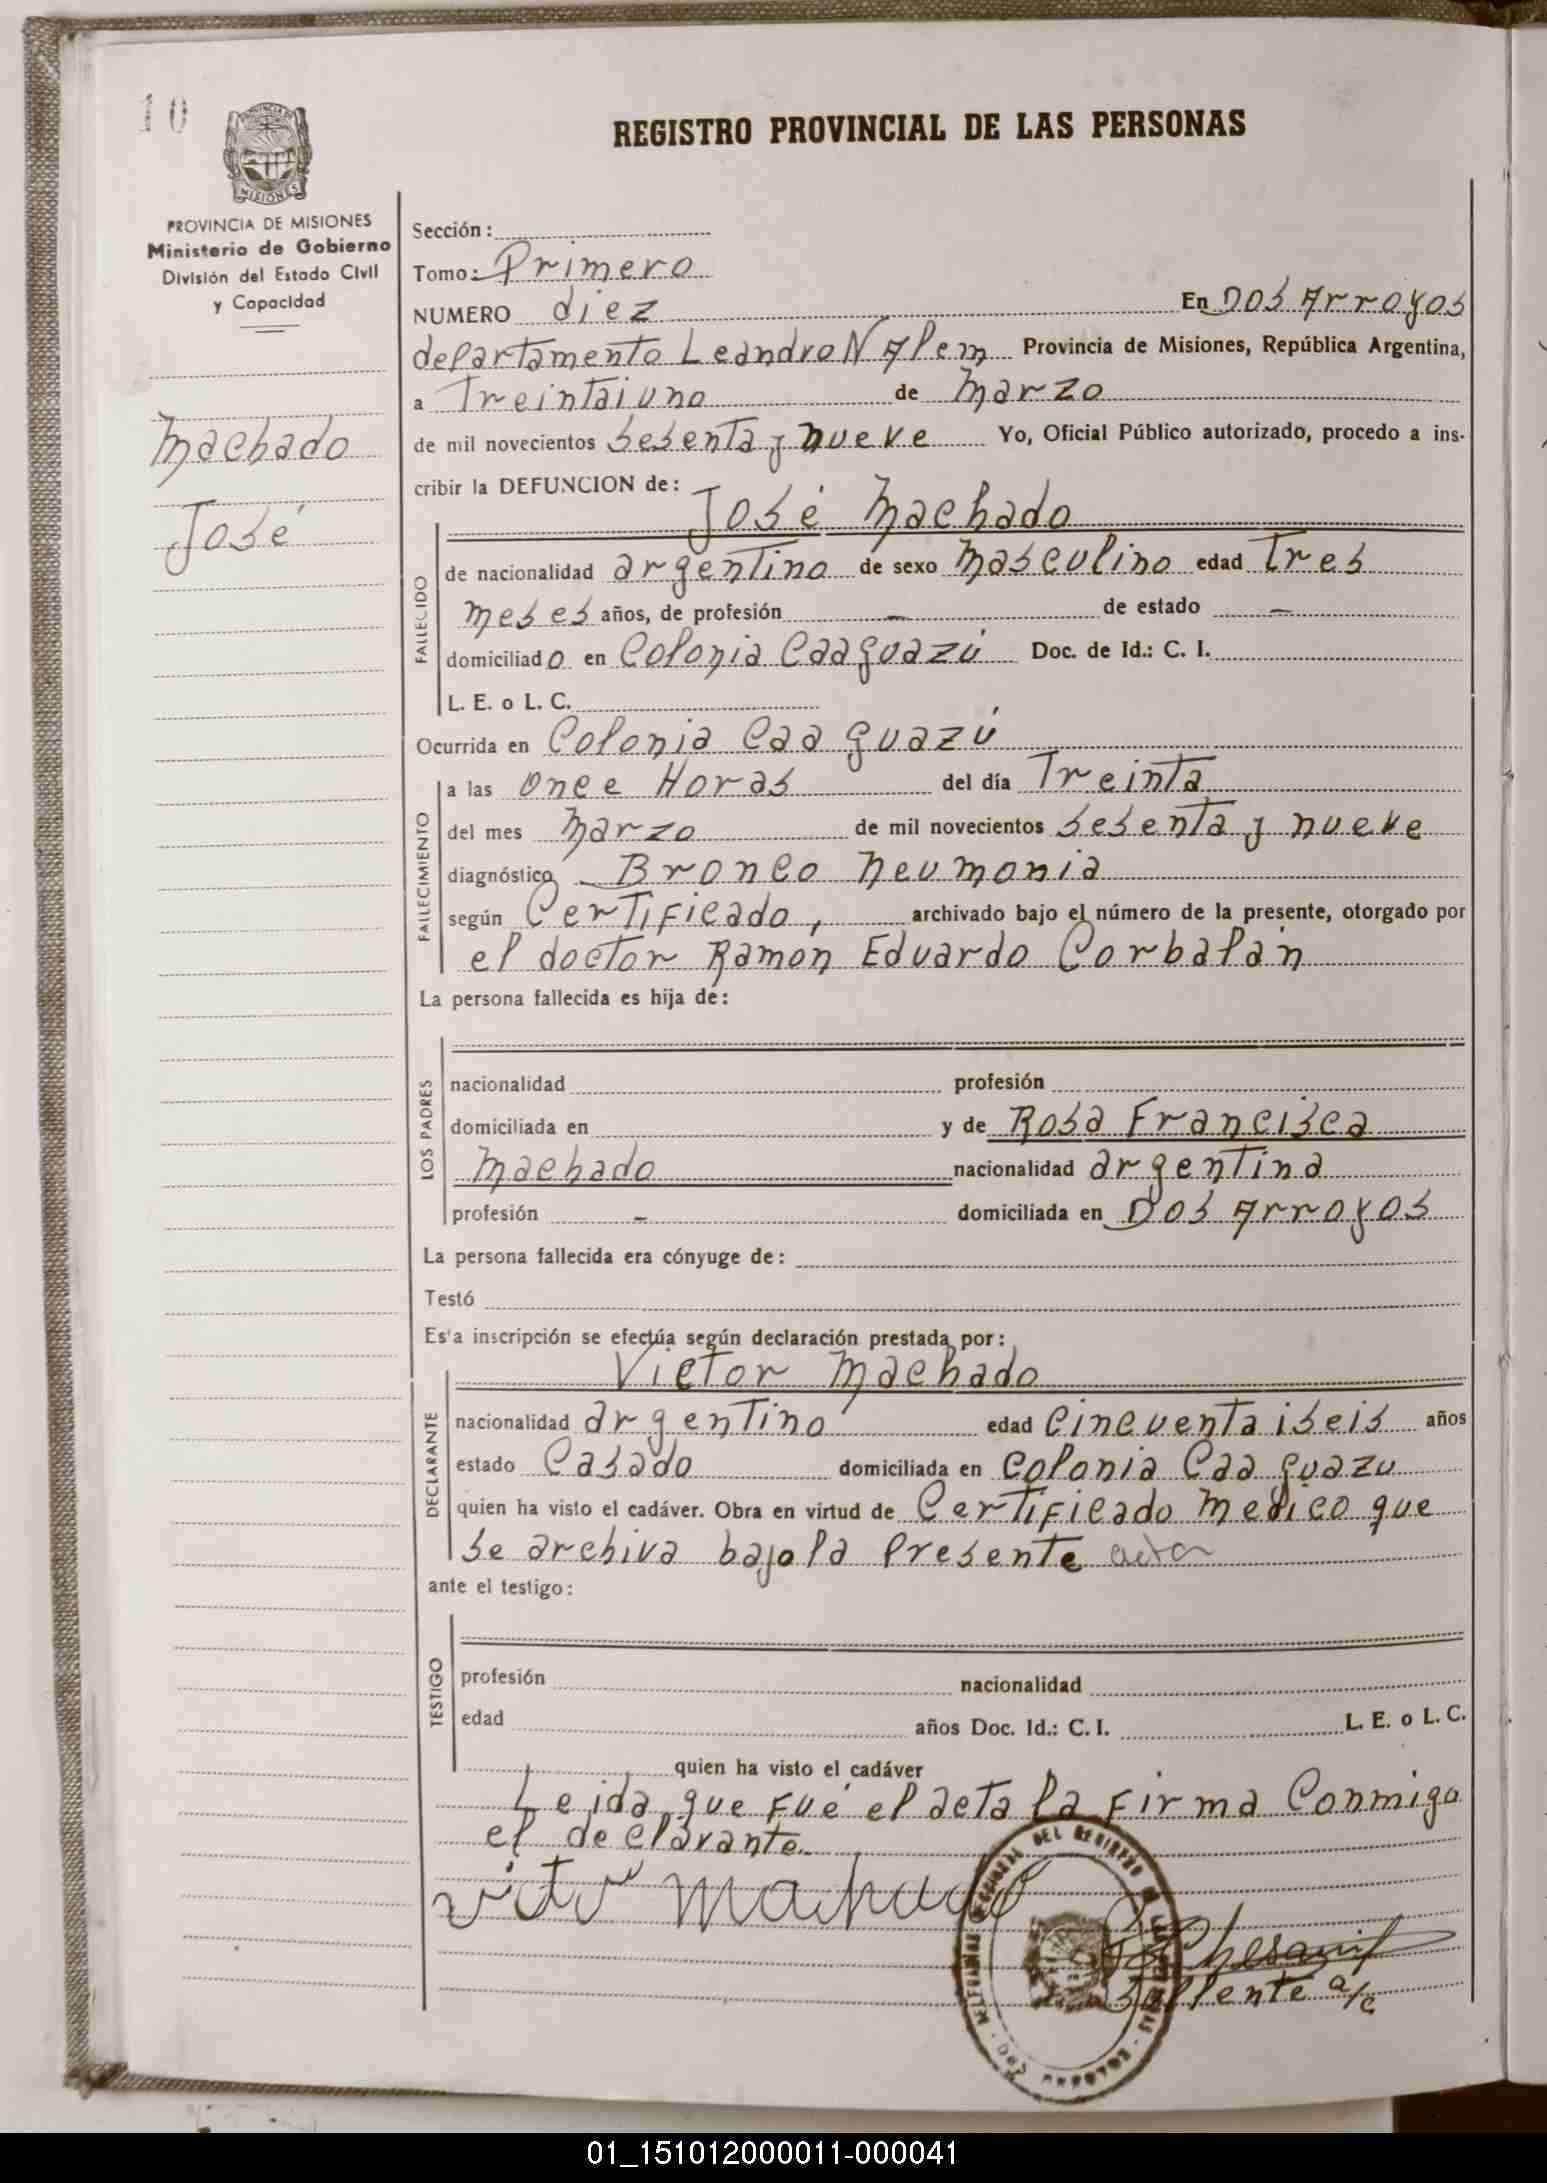 10
PROVINCIA DE MISIONES
Ministerio de Gobierno
División del Estado Civil
y Capacidad
Machado
José
REGISTRO PROVINCIAL DE LAS PERSONAS
Sección:
Tomo: Primero
NUMERO diez En Dos Arroyos
departamento Leandro N Alem Provincia de Misiones, República Argentina,
a Treintaiuno de Marzo
de mil novecientos sesenta y nueve Yo, Oficial Público autorizado, procedo a ins-
cribir la DEFUNCION de:
José Machado
FALLECIDO
de nacionalidad argentino de sexo Masculino edad Tres
meses años, de profesión - de estado -
domiciliado en Colonia Caaguazú Doc. de Id.: C. I.
L. E. o L. C.
Ocurrida en Colonia Caa guazú
FALLECIMIENTO
a las once Horas del día Treinta
del mes Marzo de mil novecientos sesenta y nueve
diagnóstico Bronco Neumonia
según Certificado, archivado bajo el número de la presente, otorgado por
el doctor Ramon Eduardo Corbalán
La persona fallecida es hija de:
LOS PADRES
nacionalidad profesión
domiciliada en y de Rosa Francisca
Machado nacionalidad argentina
profesión - domiciliada en Dos Arroyos
La persona fallecida era cónyuge de:
Testó
Es'a inscripción se efectúa según declaración prestada por:
Victor Machado
DECLARANTE
nacionalidad argentino edad Cincuenta iseis años
estado Casado domiciliada en Colonia Caa guazu
quien ha visto el cadáver. Obra en virtud de Certificado Medico que
se archiva bajo la Presente acta
ante el testigo:
TESTIGO
profesión nacionalidad
edad años Doc. Id.: C. I. L. E. o L. C.
quien ha visto el cadáver
Leida que fué el acta la Firma Conmigo
el declarante.
Machado
DEL REGISTRO
Suplente a/c
01_151012000011-000041